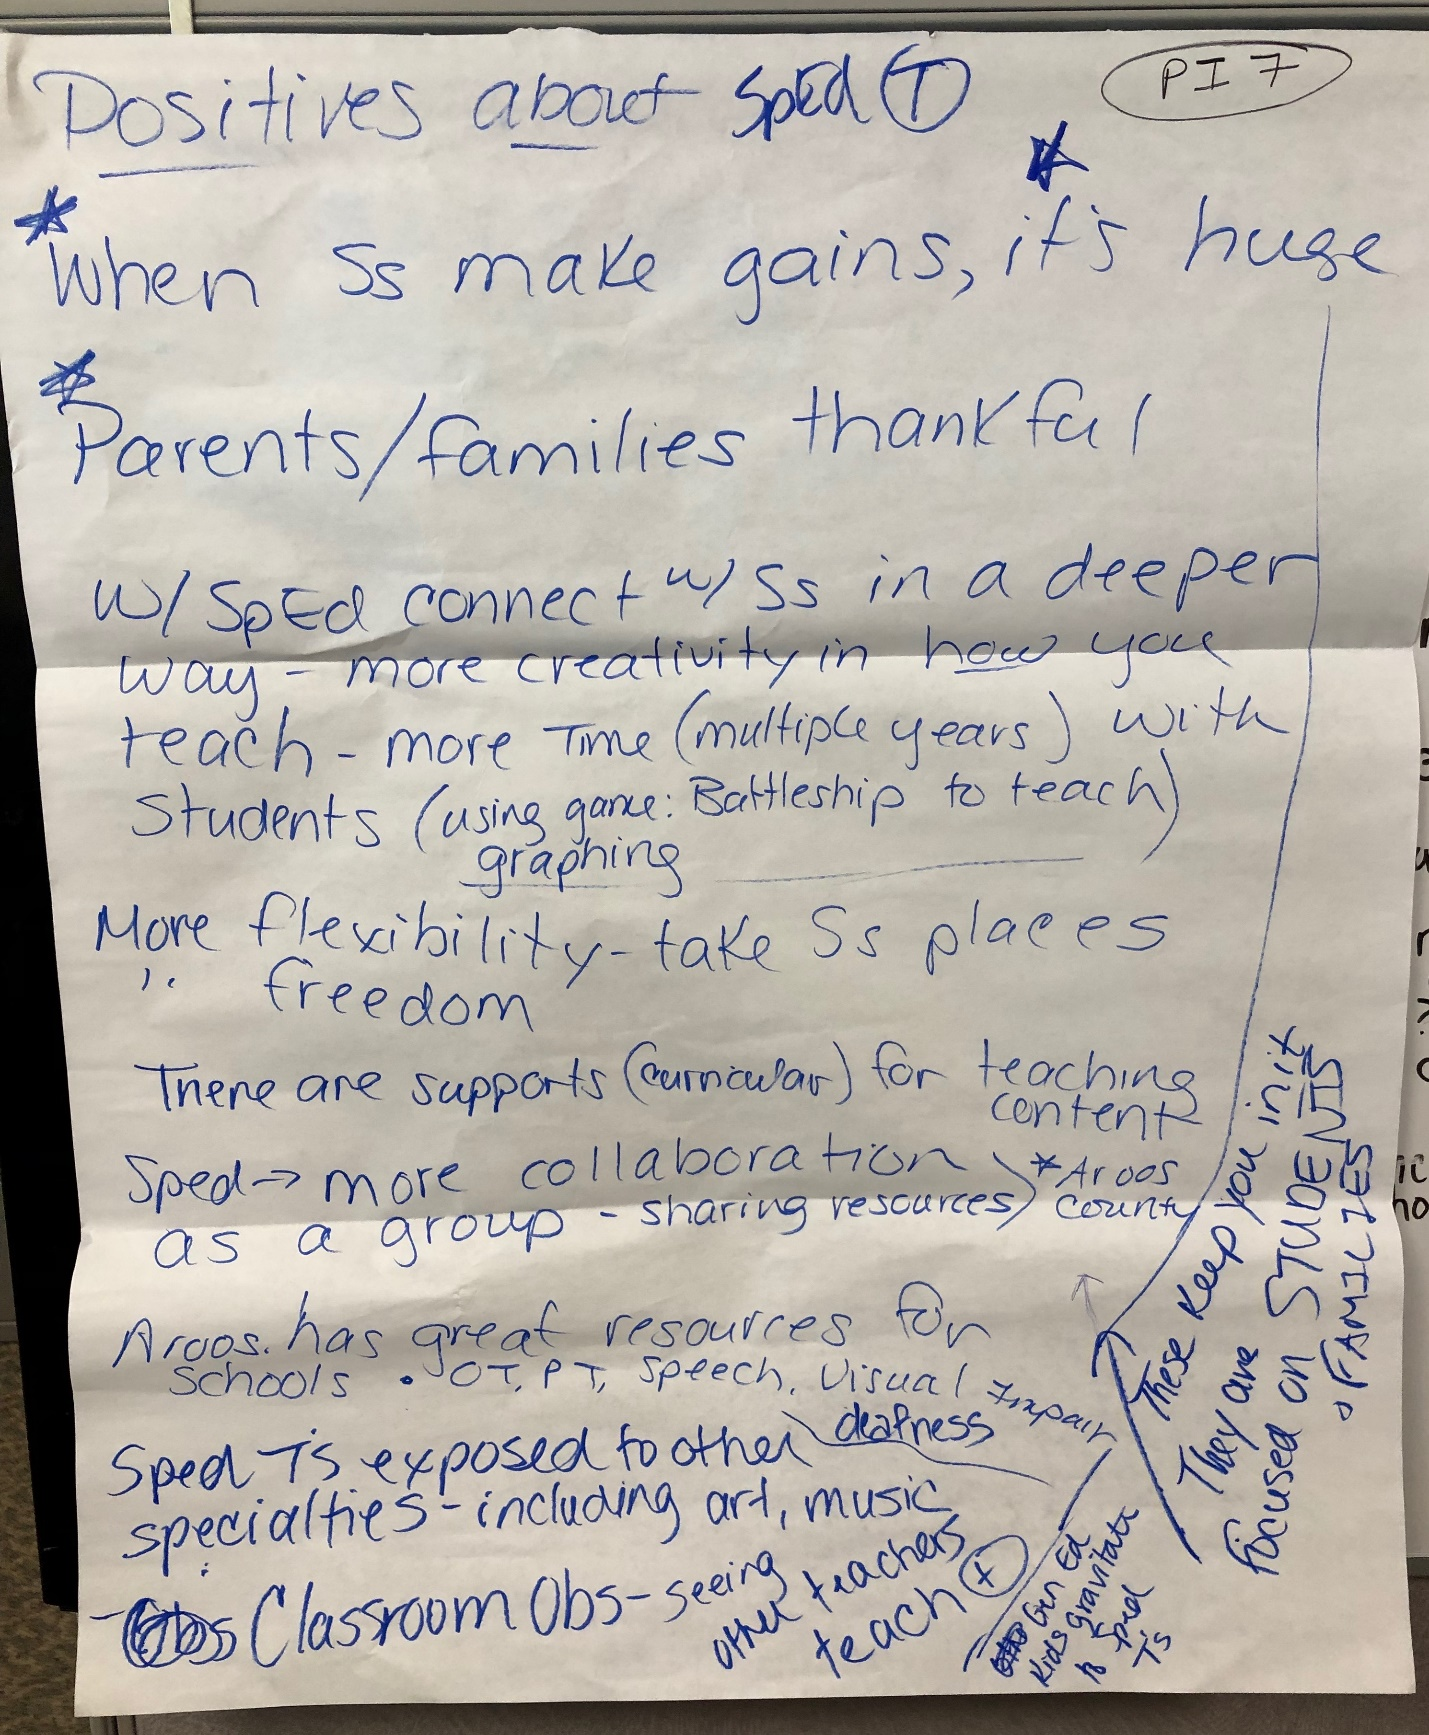 Positives about SpEd T
PI 7
* When Ss make gains, it's huge *
* Parents/families thankful
W/ SpEd connect w/ Ss in a deeper
way - more creativity in how you
teach - more Time (multiple years) with
Students (using game: Battleship to teach)
graphing
More flexibility - take Ss places
" freedom
There are supports (curricular) for teaching
content
Sped → more collaboration * Aroos
as a group - sharing resources) county
Aroos. has great resources for
schools • OT, PT, Speech, Visual Impair
deafness
Sped T's exposed to other
specialties - including art, music
Classroom Obs - seeing
other teachers
teach +
Gen Ed
Kids gravitate
to Sped
T's
These keep you in it
They are
focused on STUDENTS
FAMILIES